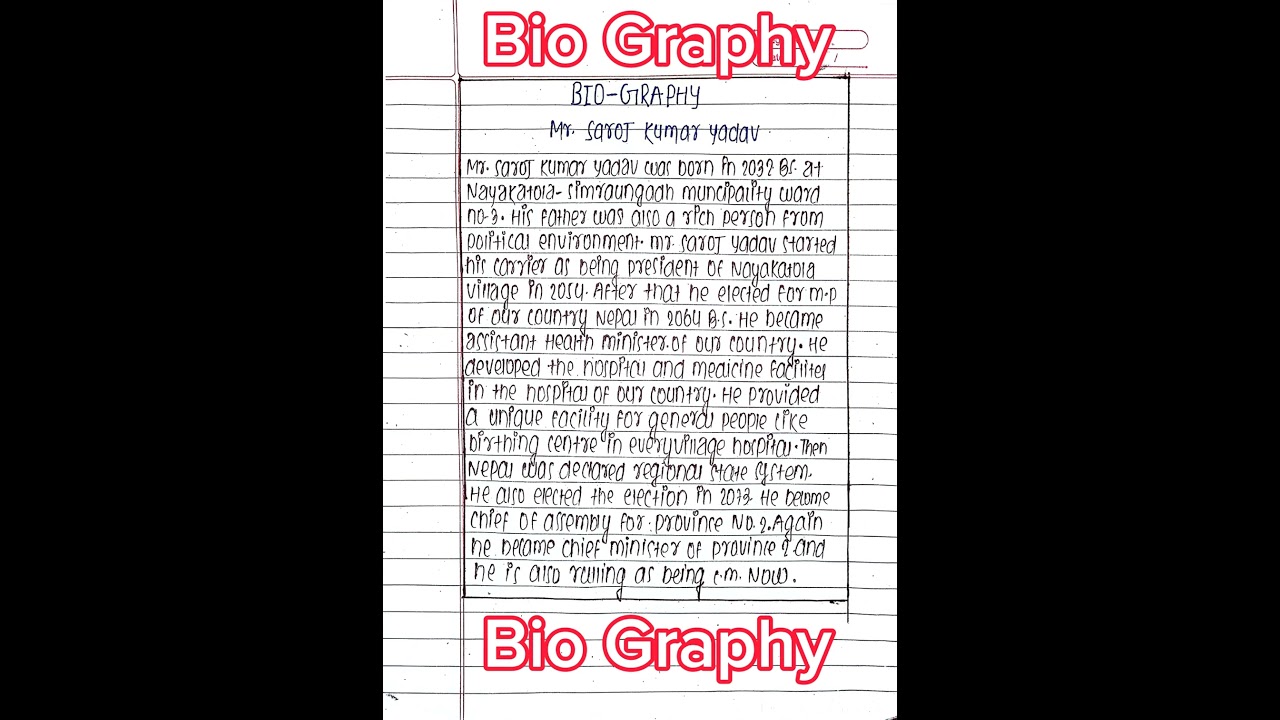 Bio Graphy
BIO-GRAPHY
Mr. Saroj Kumar Yadav
Mr. Saroj Kumar Yadav was born in 2032 B.S. at
Nayakatola- Simraungadh muncipality ward
no-3. His father was also a rich person from
political environment. Mr. Saroj Yadav started
his carrier as being president of Nayakatola
village in 2054. After that he elected for m.p
of our country Nepal in 2064 B.S. He became
assistant Health minister of our country. He
developed the hospital and medicine facilites
in the hospital of our country. He provided
a unique facility for general people like
birthing centre in every village hospital. Then
Nepal was declared regional state system.
He also elected the election in 2073 He become
chief of assembly for province No.2. Again
he became chief minister of province 2 and
he is also rulling as being c.m. Now.
Bio Graphy